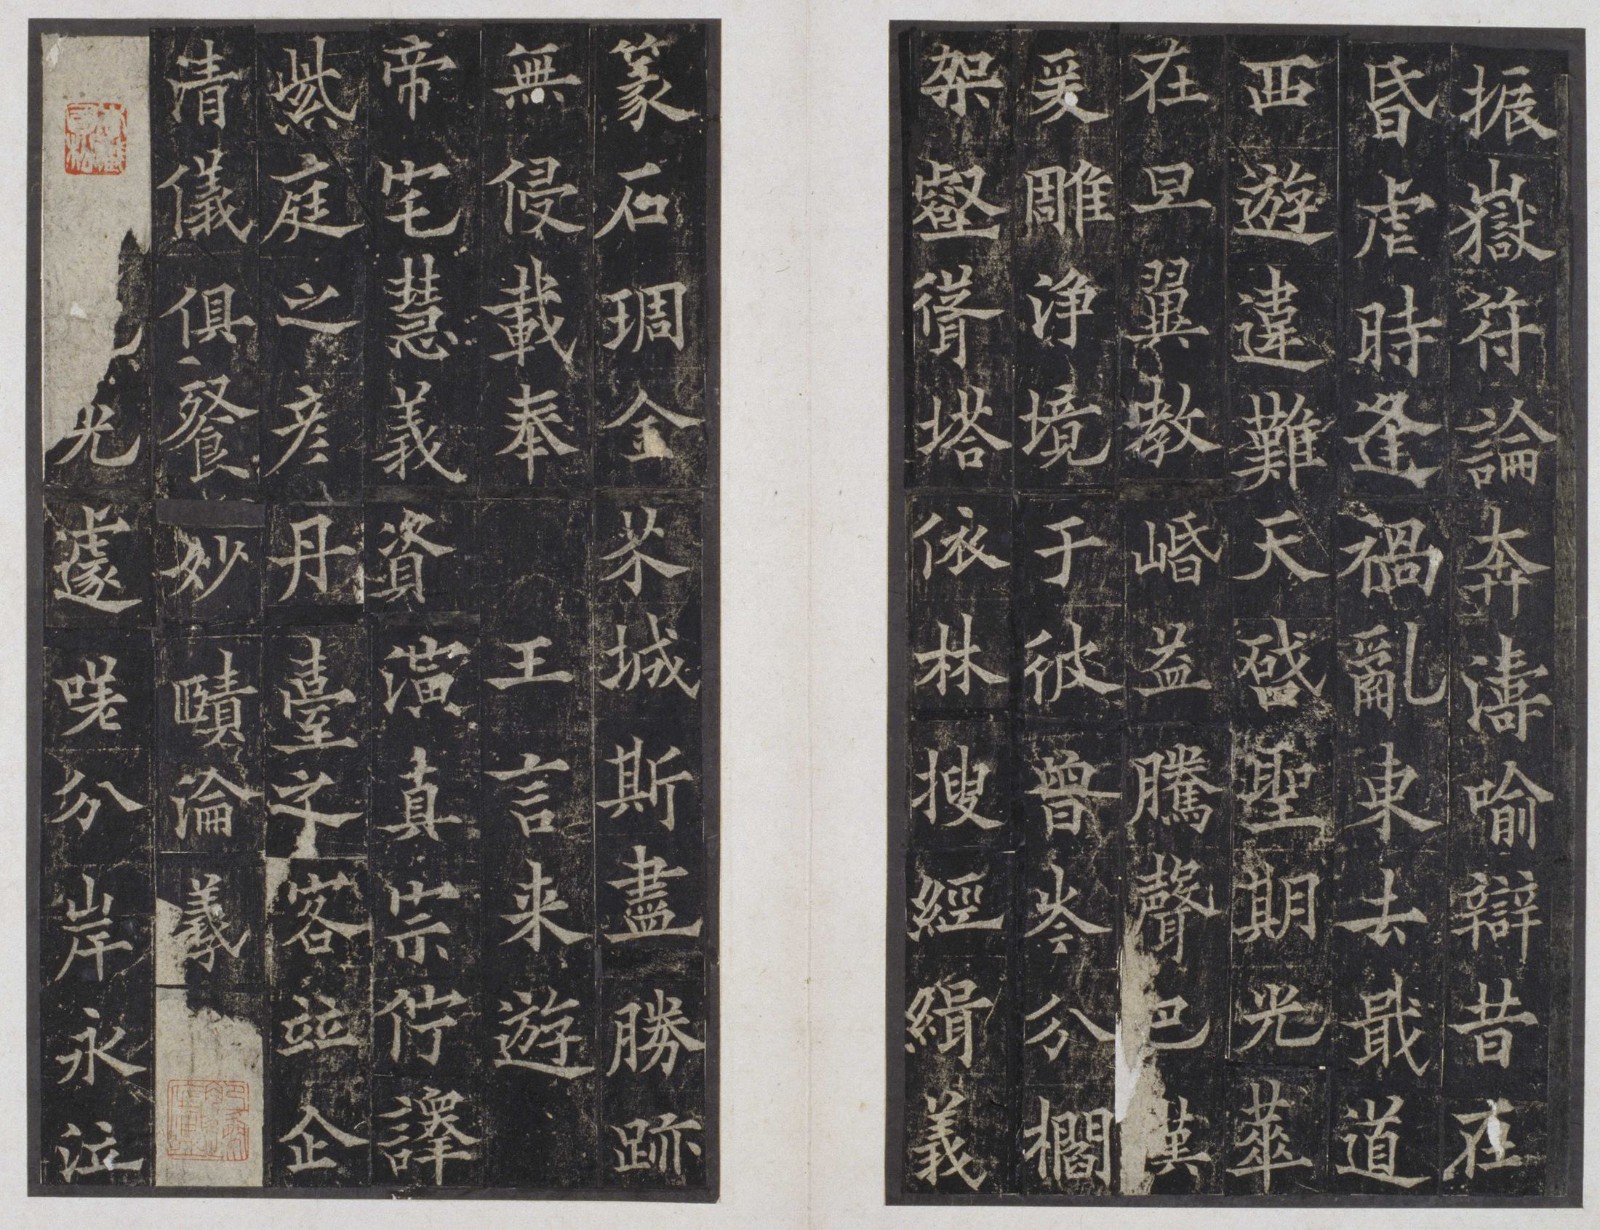 振嶽符論奔濤喻辯昔在
昏虐時逢禍亂東去戢道
西遊違難天啓聖期光華
在旦翼教崏益騰聲巴漢
爰雕淨境于彼曾岑分櫩
架壑聳塔依林搜經緝義
篆石琱金芥城斯盡勝跡
無侵載奉 王言来遊
帝宅慧義資演真宗佇譯
紫庭之彦丹臺之客並企
清儀俱餐妙賾淪羲
光遽嗟分岸永泣